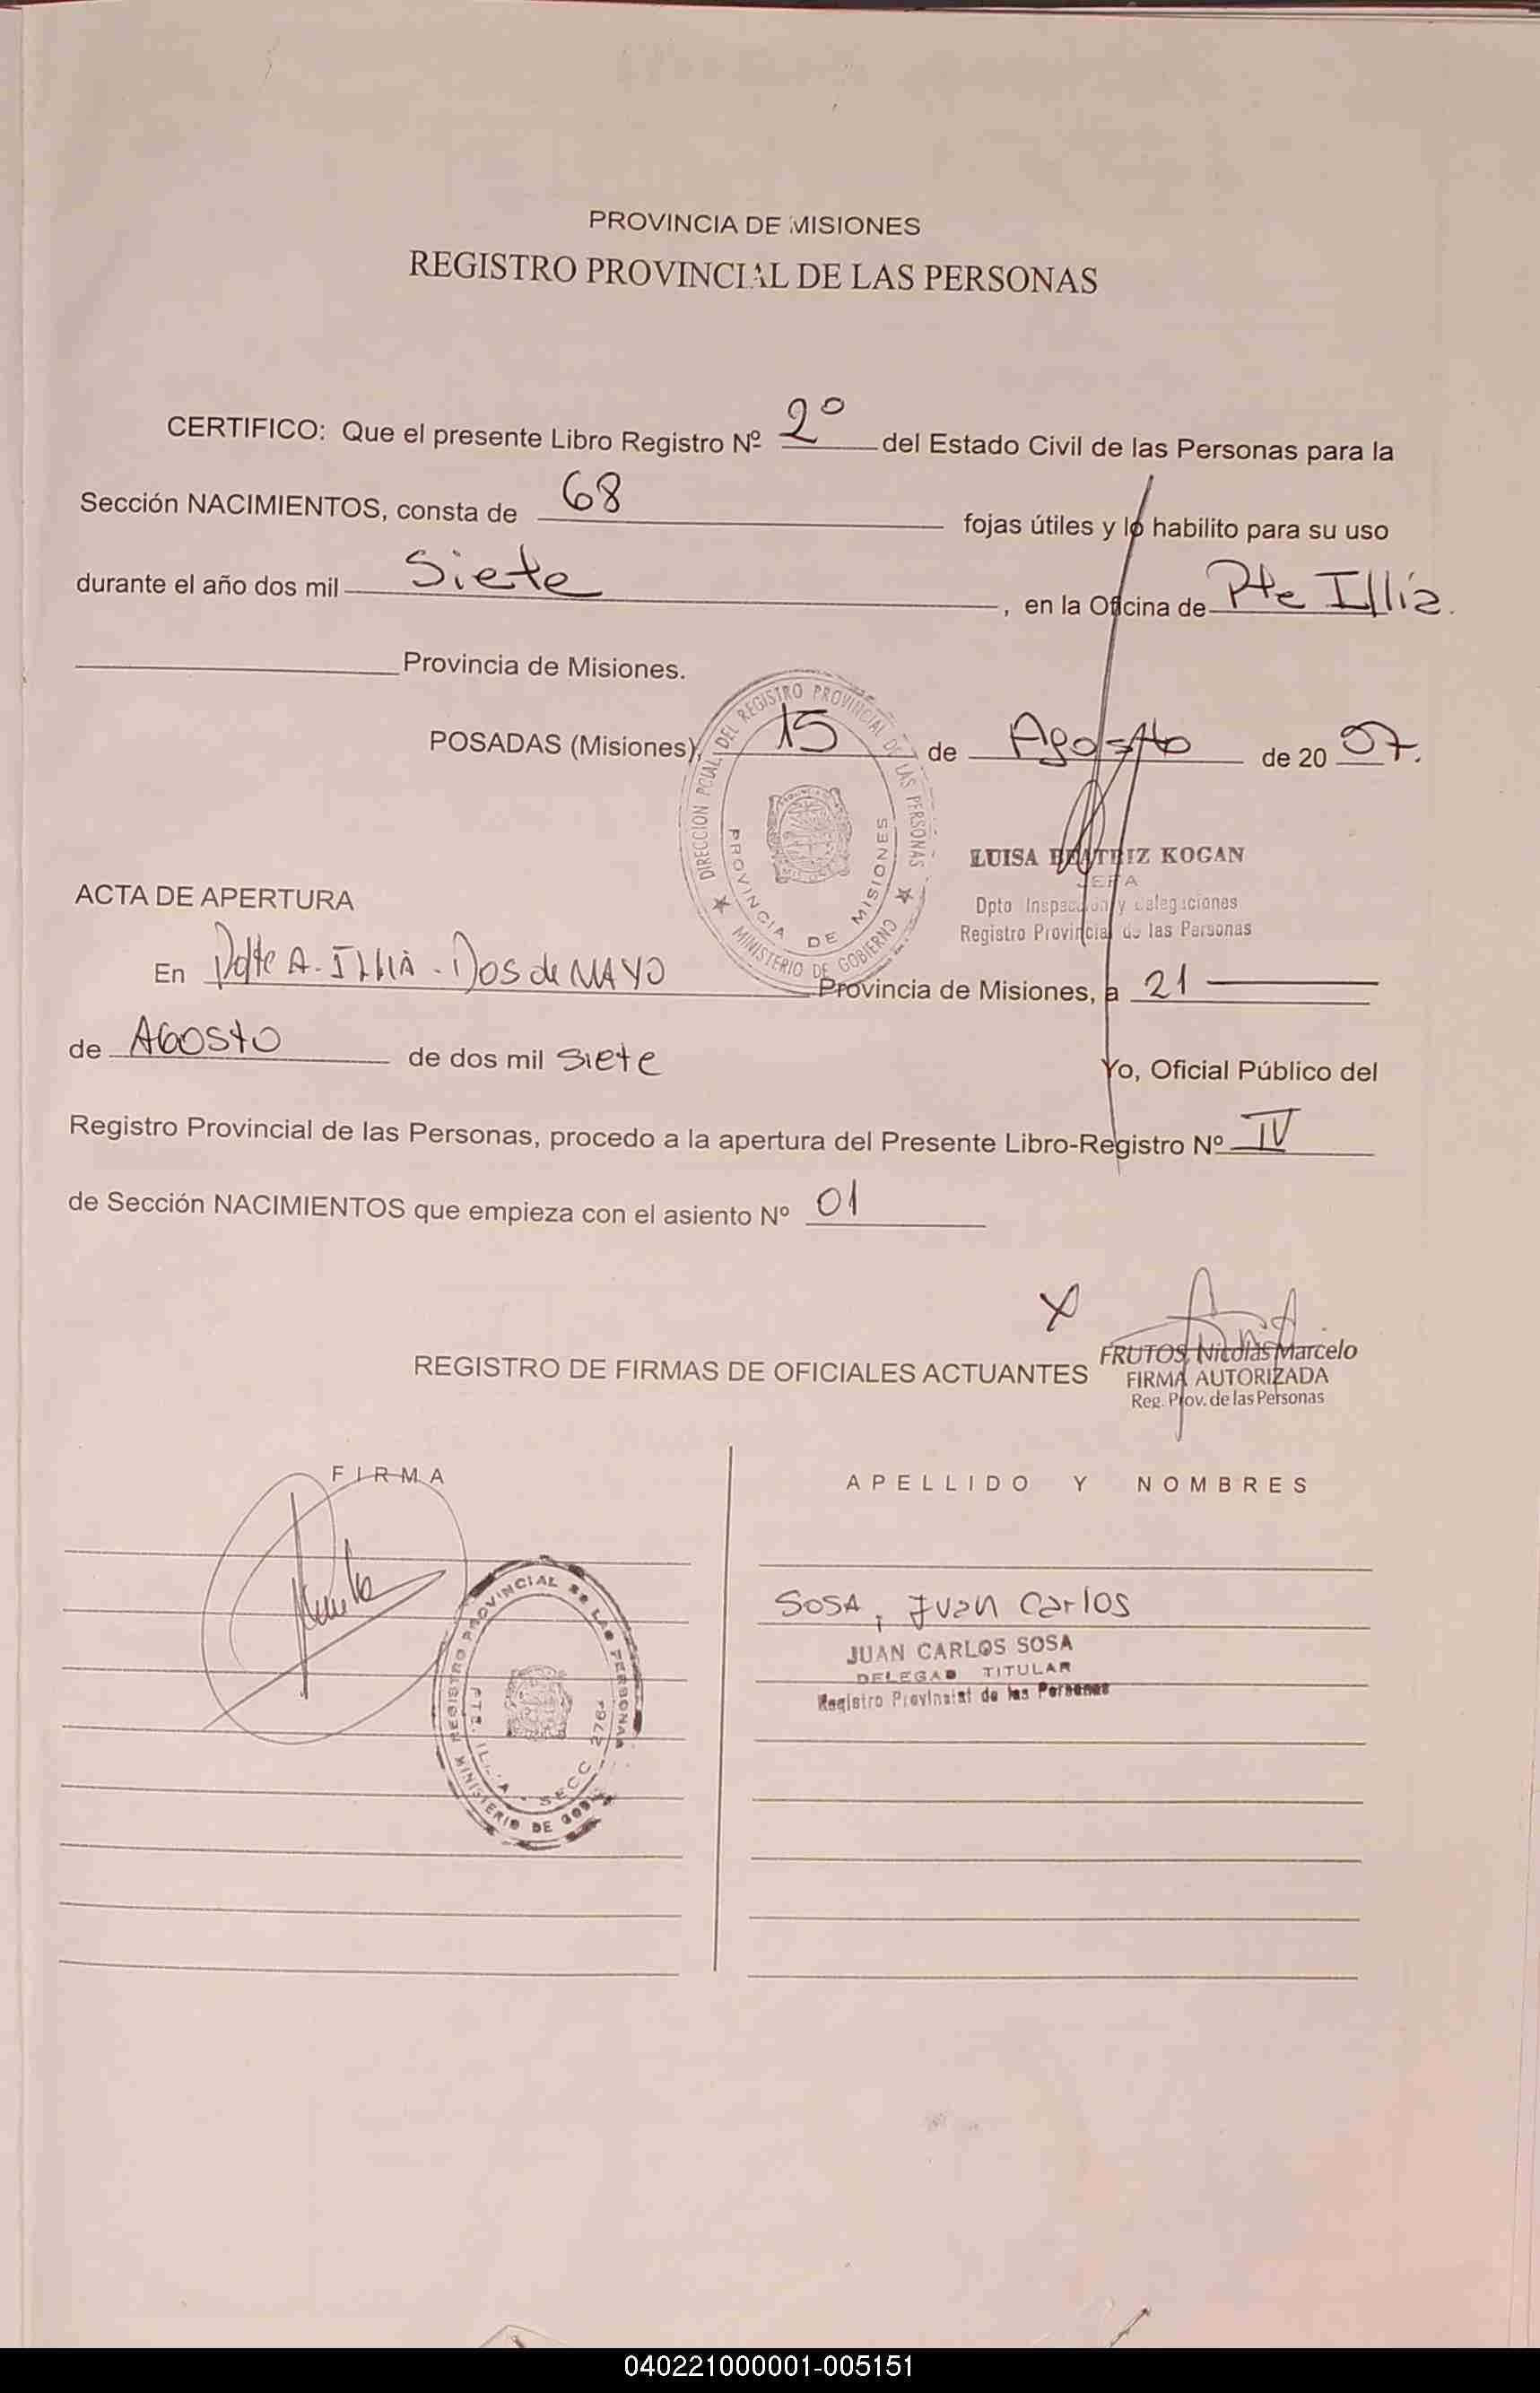 PROVINCIA DE MISIONES
REGISTRO PROVINCIAL DE LAS PERSONAS
CERTIFICO: Que el presente Libro Registro Nº 2º del Estado Civil de las Personas para la
Sección NACIMIENTOS, consta de 68 fojas útiles y lo habilito para su uso
durante el año dos mil Siete, en la Oficina de Pte Illia.
Provincia de Misiones.
POSADAS (Misiones), 15 de Agosto de 20 07.
DIRECCION PCIAL. DEL REGISTRO PROVINCIAL DE LAS PERSONAS
MINISTERIO DE GOBIERNO
PROVINCIA DE MISIONES
LUISA BEATRIZ KOGAN
JEFA
Dpto Inspección y Delegaciones
Registro Provincial de las Personas
ACTA DE APERTURA
En Pdte A. ILLIA - DOS de MAYO Provincia de Misiones, a 21
de AGOSTO de dos mil siete Yo, Oficial Público del
Registro Provincial de las Personas, procedo a la apertura del Presente Libro-Registro Nº IV
de Sección NACIMIENTOS que empieza con el asiento Nº 01
X
FRUTOS, Nicolás Marcelo
FIRMA AUTORIZADA
Reg. Prov. de las Personas
REGISTRO DE FIRMAS DE OFICIALES ACTUANTES
FIRMA
APELLIDO Y NOMBRES
SOSA, Juan Carlos
JUAN CARLOS SOSA
DELEGAD TITULAR
Registro Provincial de las Personas
REGISTRO PROVINCIAL DE LAS PERSONAS
MINISTERIO DE GOB
PTE. ILLIA - SECC
040221000001-005151